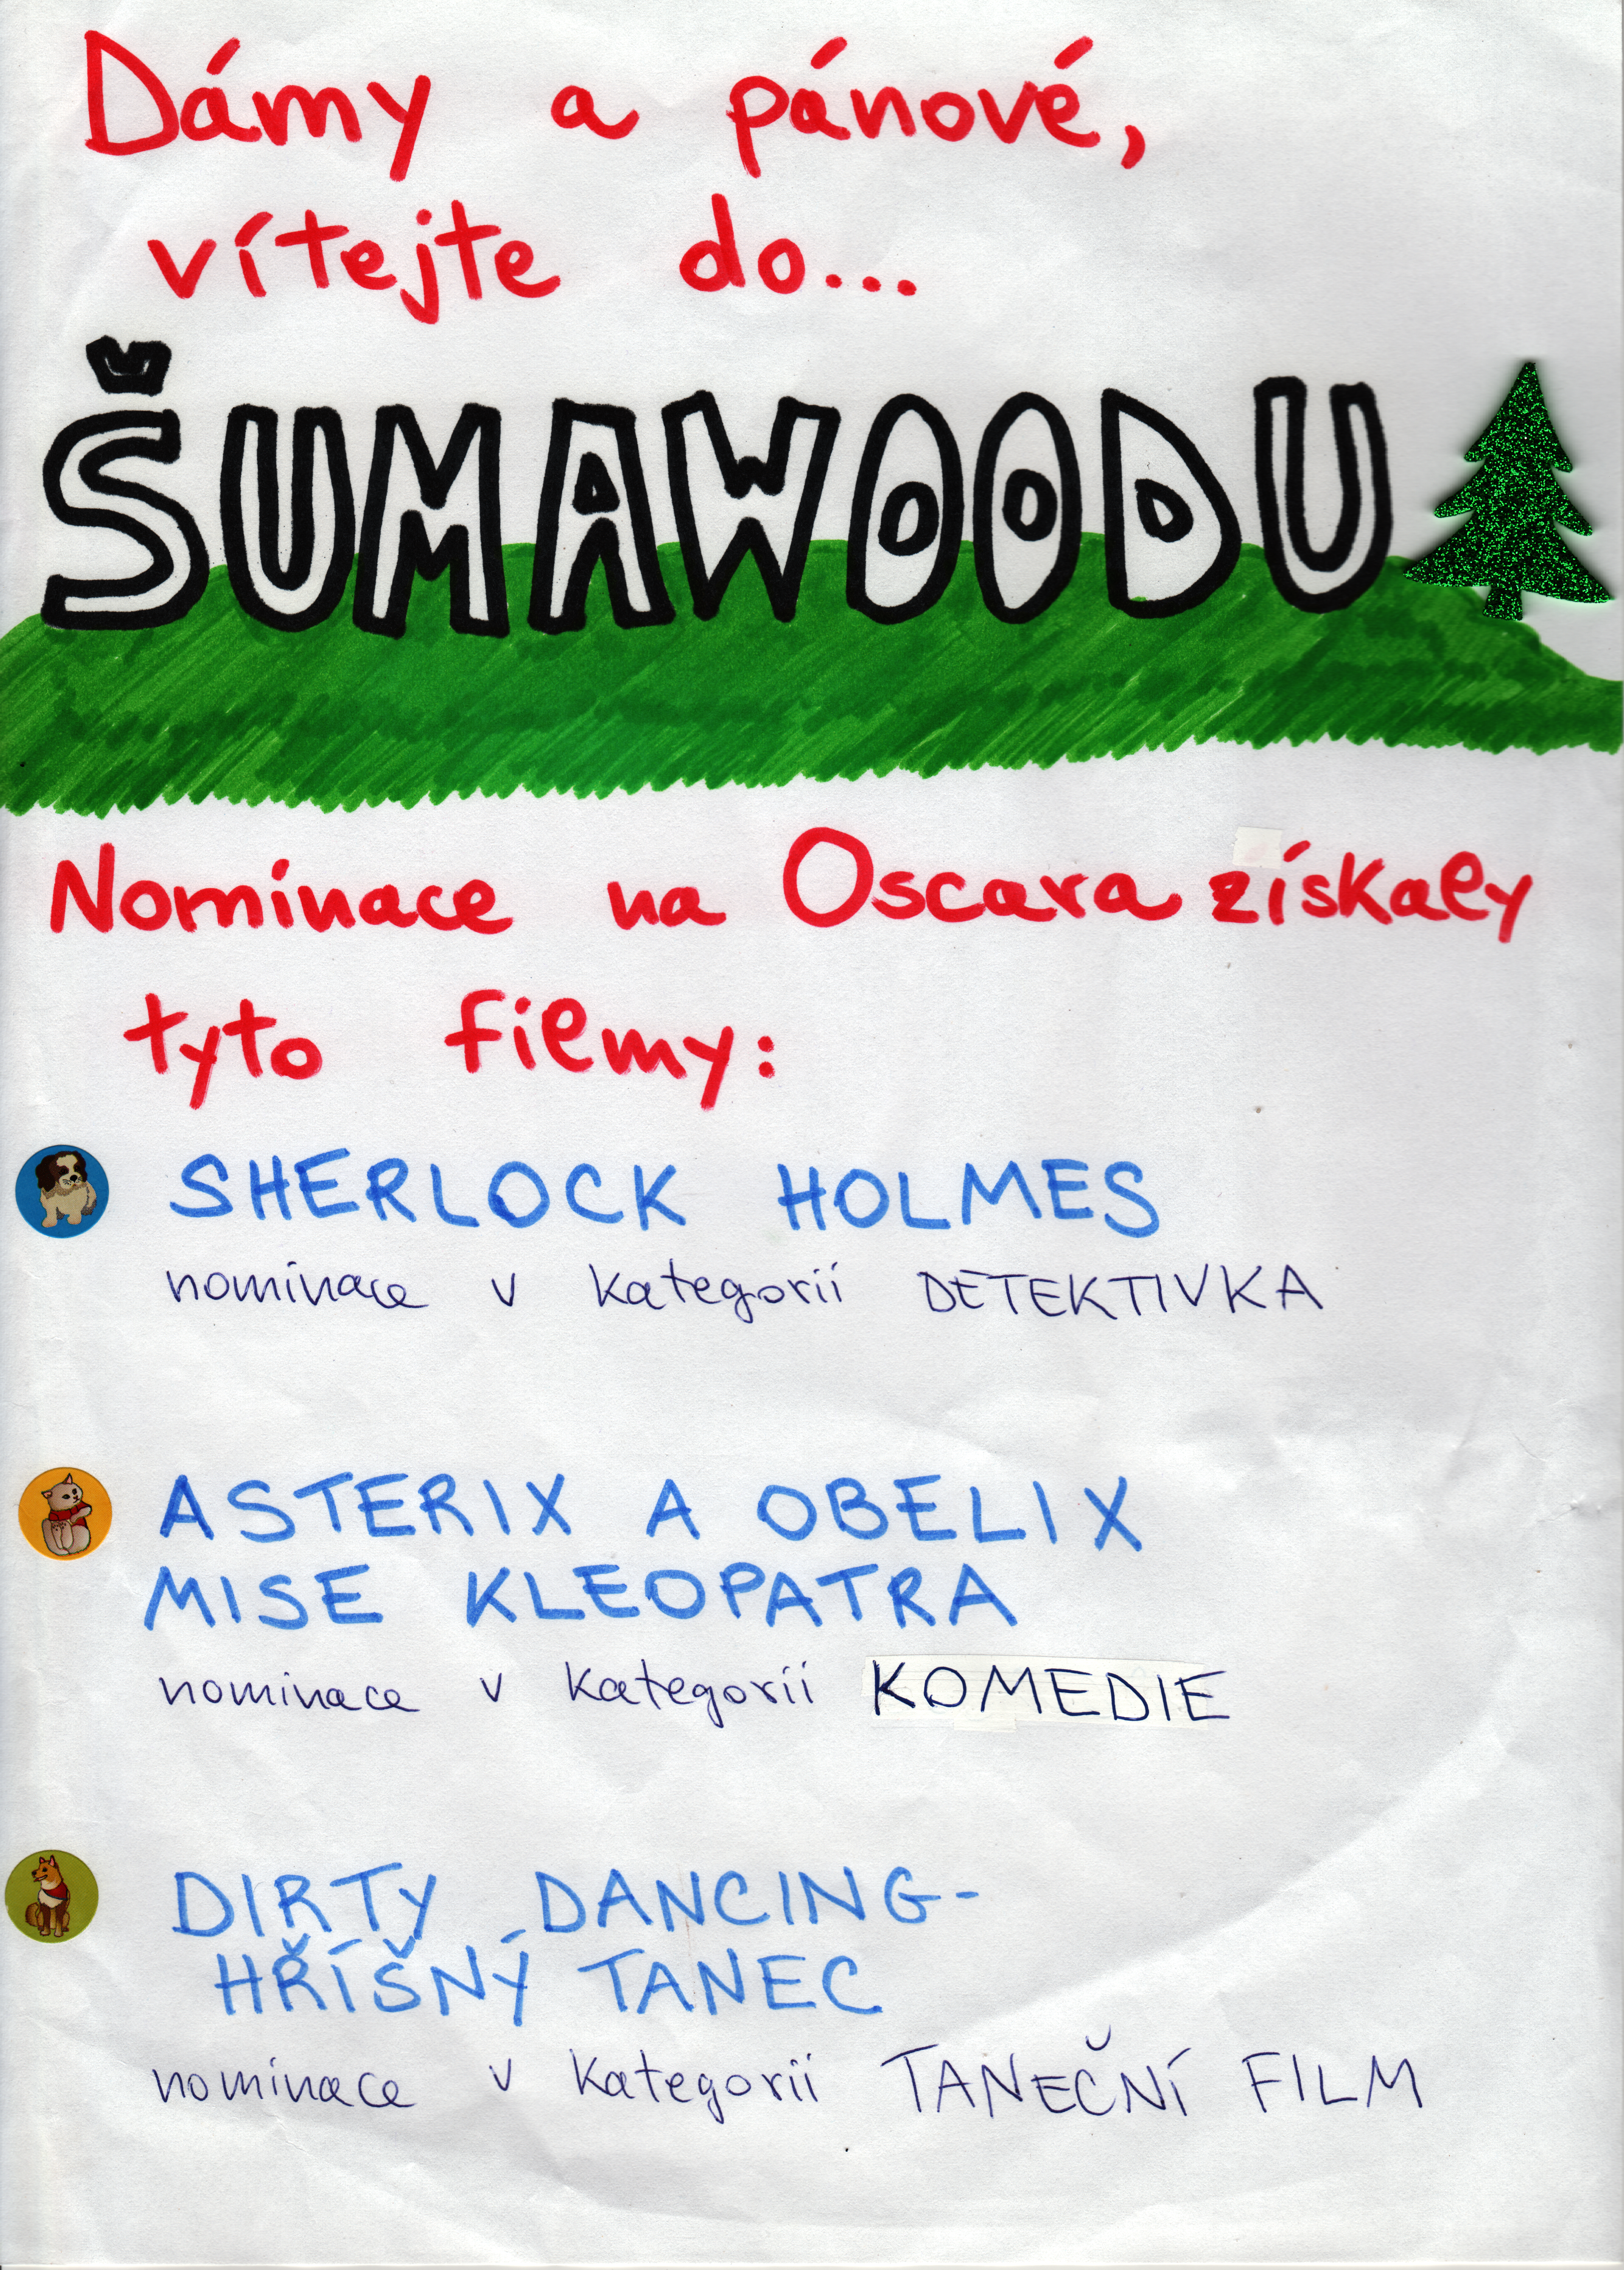 Dámy a pánové,
vítejte do...
ŠUMAWOODU
Nominace na Oscara získaly
tyto filmy:
SHERLOCK HOLMES
nominace v kategorii DETEKTIVKA
ASTERIX A OBELIX
MISE KLEOPATRA
nominace v kategorii KOMEDIE
DIRTY DANCING-
HŘÍŠNÝ TANEC
nominace v kategorii TANEČNÍ FILM